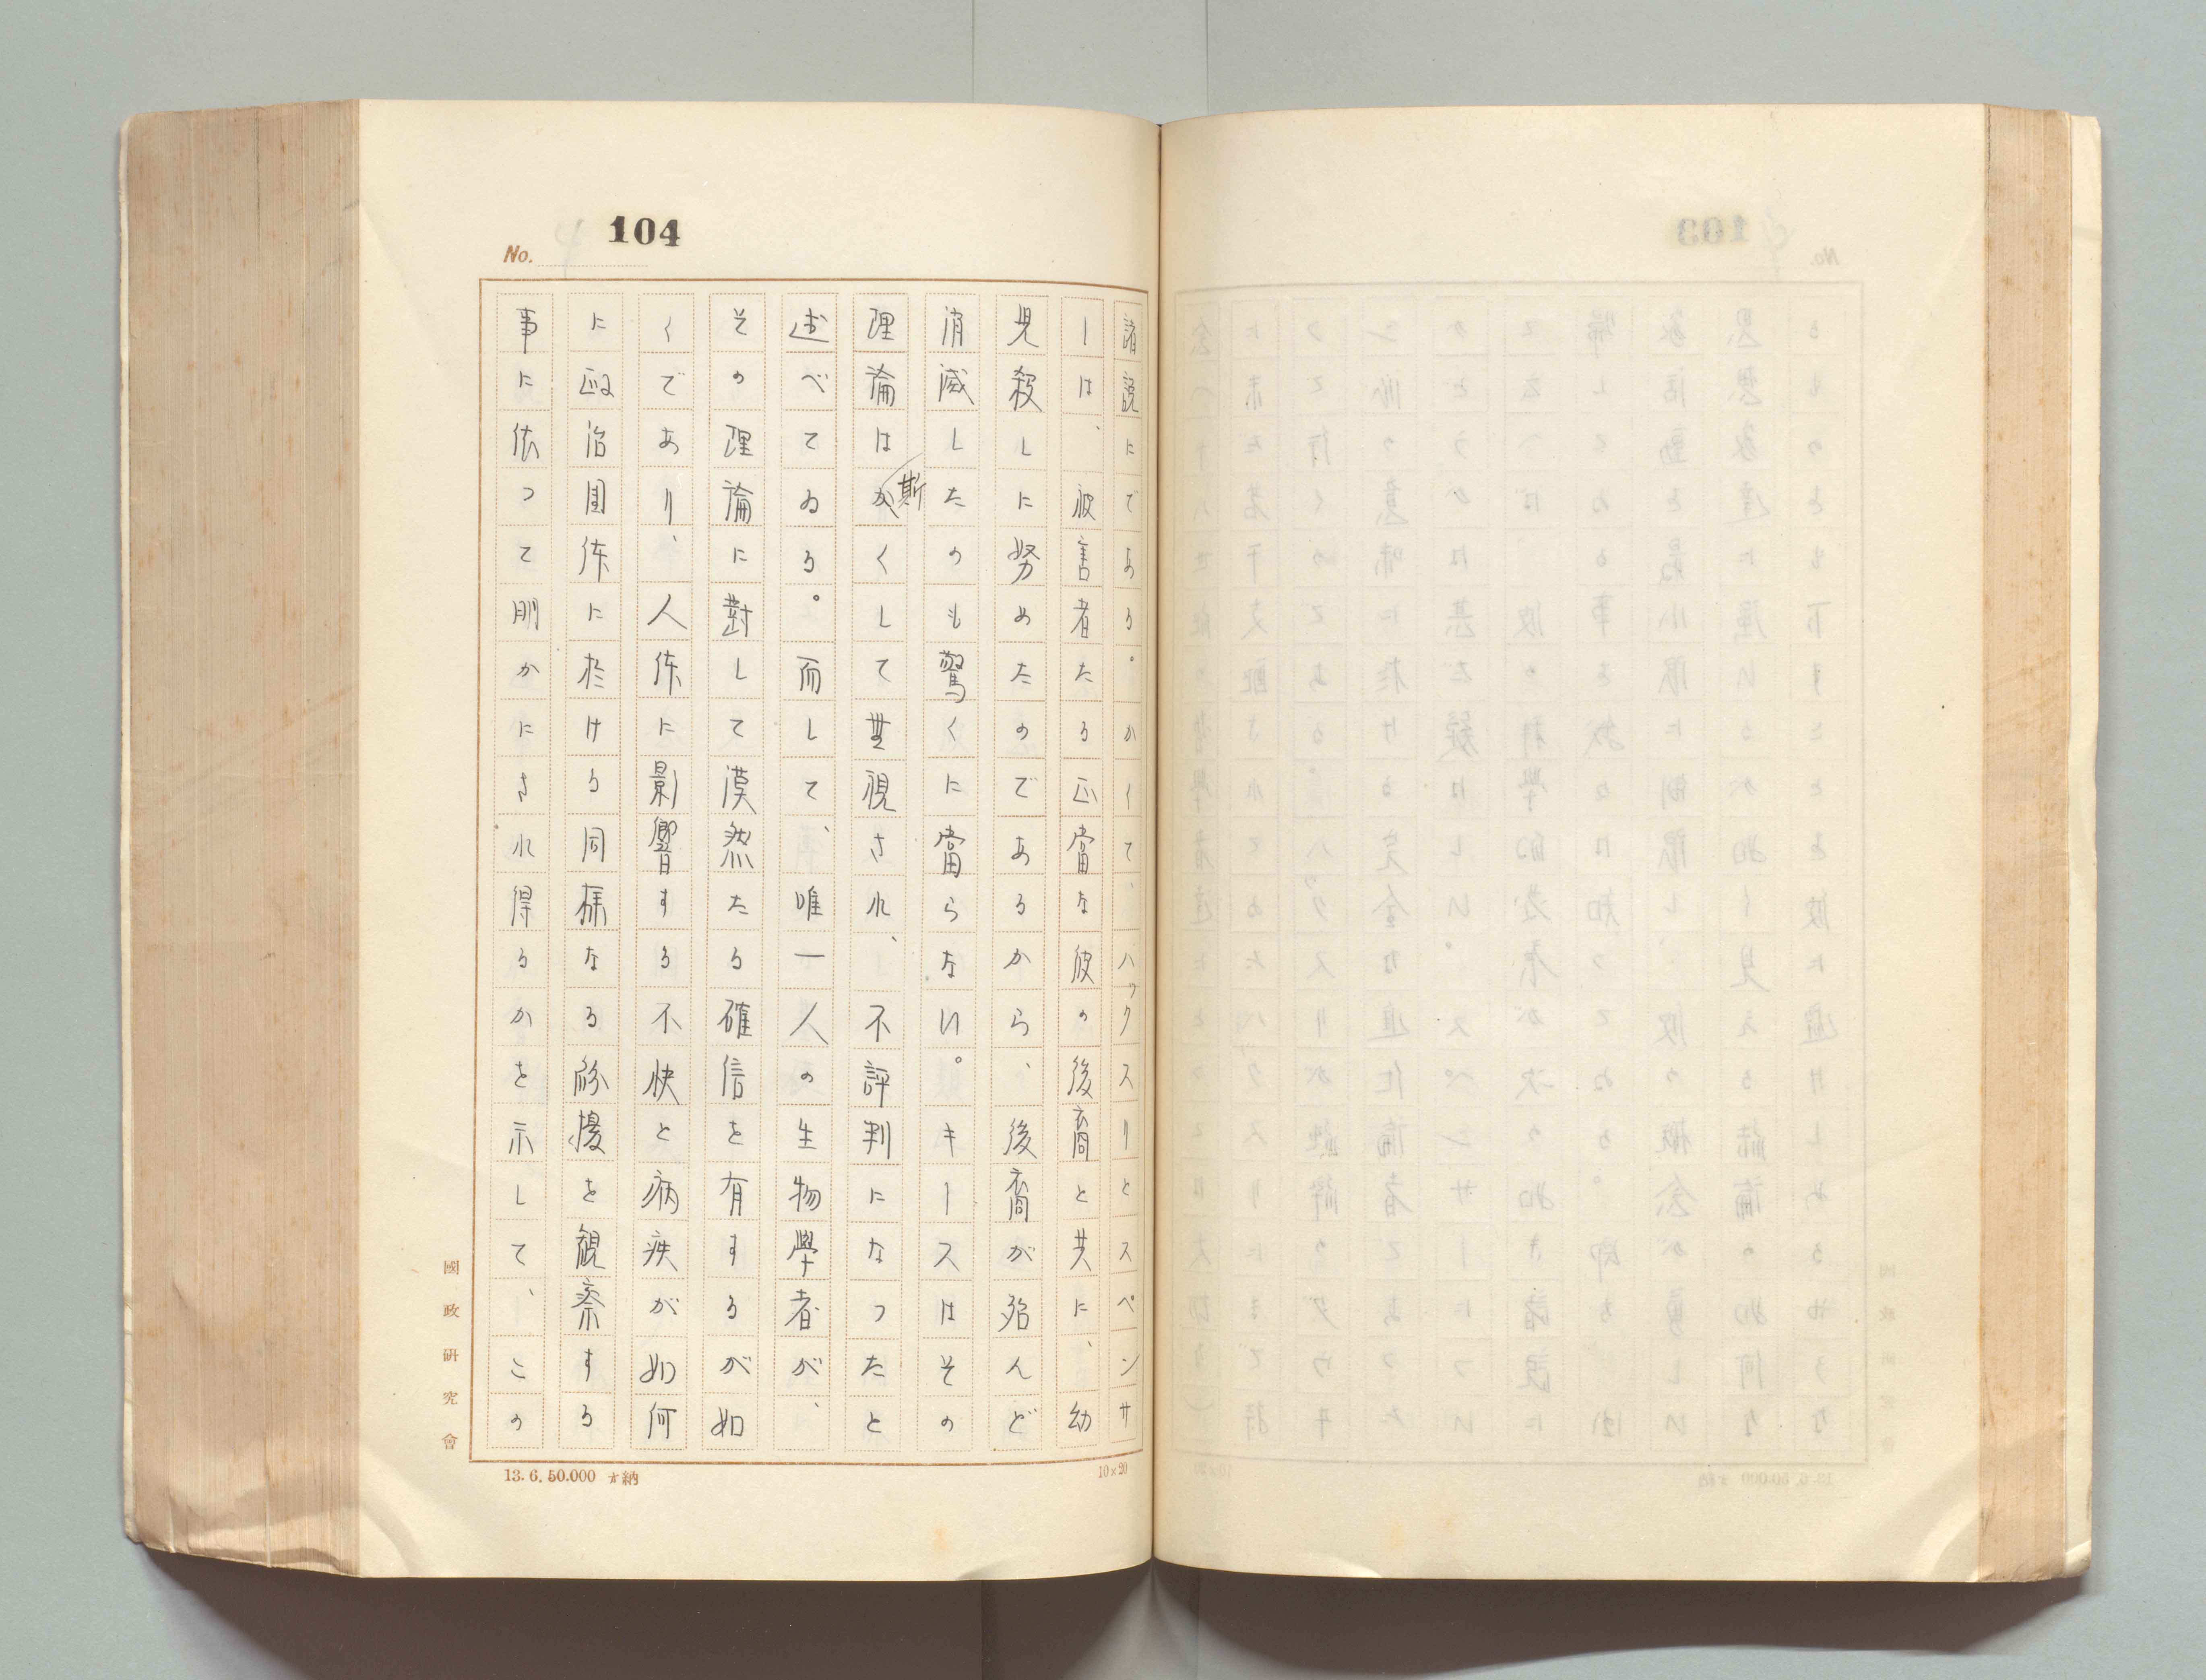 104
No.
諸説にである。かくて、ハックスリとスペンサ
ーは、被害者たる正當な彼の後裔と共に、幼
児殺しに努めたのであるから、後裔が殆んど
消滅したのも驚くに當らない。キースはその
理論は斯くして無視され、不評判になったと
述べてゐる。而して、唯一人の生物學者が、
その理論に對して漠然たる確信を有するが如
くであり、人体に影響する不快と病疾が如何
に政治團体に於ける同様なる紛擾を観察する
事に依つて明かにされ得るかを示して、この
國政研究會
13.6.50.000 納
10×20